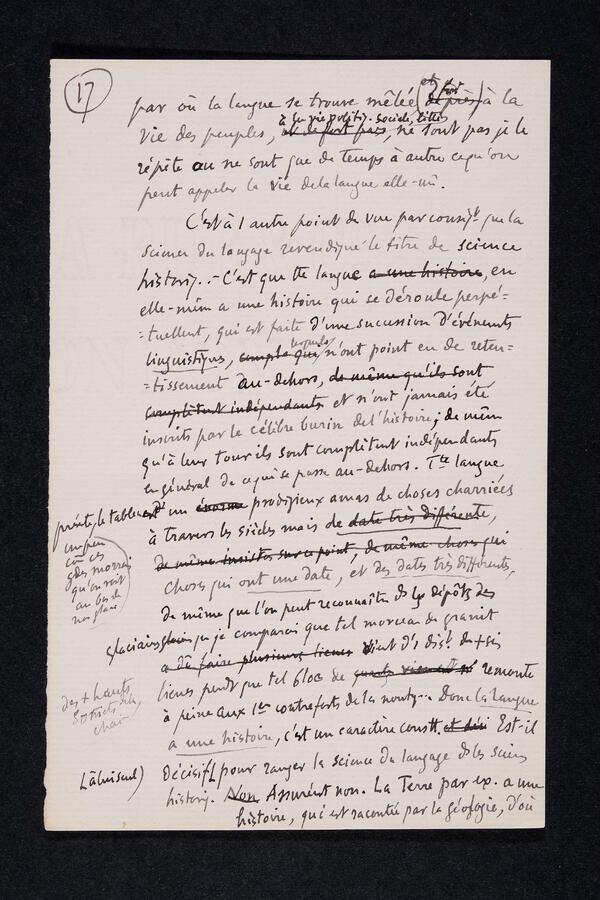 17
par où la langue se trouve mêlée (et de fort près) à la
vie des peuples, à la vie politiq. sociale, litt. et de fort près, ne sont pas je le
répète ou ne sont que de temps à autre ce qu'on
peut appeler la vie de la langue elle-mê.
C'est à l'autre point de vue par conséqt que la
science du langage revendique le titre de science
historiq. .- C'est que tte langue a une histoire, en
elle-mêm a une histoire qui se déroule perpé=
=tuellemt, qui est faite d'une succession d'événements
linguistiques, lesquels n'ont point eu de reten=
=tissement au-dehors, de même qu'ils sont
complètemt indépendants et n'ont jamais été
inscrits par le célèbre burin de l'histoire; de mêm
qu'à leur tour ils sont complètemt indépendants
en général de ce qui se passe au-dehors. Tte langue
présente le tableau d'un énorme prodigieux amas de choses charriées
un peu
ces
gdes moraines
qu'on voit
au bas de
nos glaciers
à travers les siècles mais de date très différente,
de même insister sur ce point, de même choses qui
choses qui ont une date, et des dates très différentes,
de même que l'on peut reconnaître ds les dépôts des
glaciaires que je comparais que tel morceau de granit
a dû faire plusieurs lieues vient d'1 dist. de +sis
des + hauts
lieues pendt que tel bloc de remonte
à peine aux 1ers contreforts de la montg.. Donc la langue
a une histoire, c'est un caractère constt, Est-il
(à lui seul) décisif pour ranger la science du langage ds les scienc
historiq. Non Assurémt non. La Terre par ex. a une
histoire, qui est racontée par la géologie, d'où